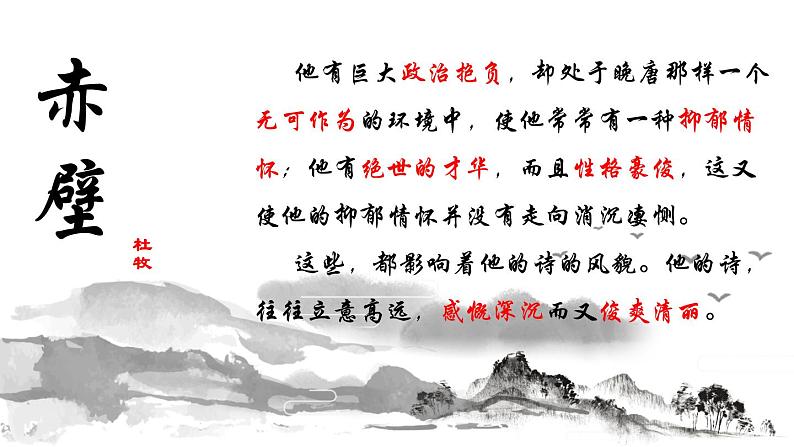 赤壁
杜牧
他有巨大政治抱负，却处于晚唐那样一个
无可作为的环境中，使他常常有一种抑郁情
怀；他有绝世的才华，而且性格豪俊，这又
使他的抑郁情怀并没有走向消沉凄恻。
这些，都影响着他的诗的风貌。他的诗，
往往立意高远，感慨深沉而又俊爽清丽。